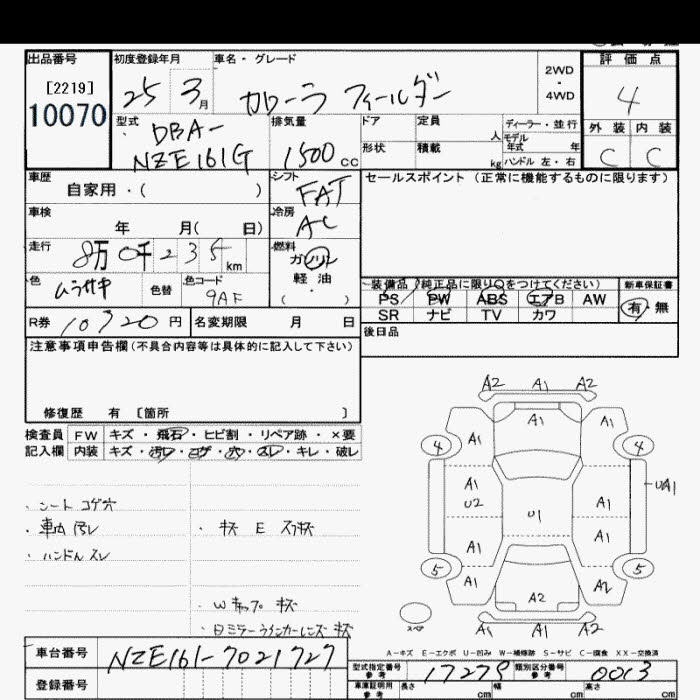 出品番号 初度登録年月 車名・グレード 評価点
[2219] 25 3月 カローラ フィールダー 2WD・4WD 4
10070
型式 DBA- 排気量 ドア 定員 人 ディーラー・並行 外装 内装
NZE161G 1500 cc 形状 積載 kg モデル年式 年 ハンドル 左・右 C C
車歴 シフト セールスポイント (正常に機能するものに限ります)
自家用・( ) FAT
車検 冷房
年 月( 日) AC
走行 燃料
8万0千235km ガソリン
色 色替 色コード 軽油
ムラサキ 9AF ( ・ )
装備品(純正品に限り○をつけてください) 新車保証書
PS PW ABS エアB AW 有・無
SR ナビ TV カワ
R券 10720円 名変期限 月 日 後日品
注意事項申告欄(不具合内容等は具体的に記入して下さい)
修復歴 有 [箇所 ]
検査員 FW キズ・飛石・ヒビ割・リペア跡・×要
記入欄 内装 キズ・汚レ・コゲ・穴・スレ・キレ・破レ
・シート コゲ穴
・車内 汚レ ・キズ E スリキズ
・ハンドル スレ
・Wキャップ キズ
・日ミラーウインカーレンズ キズ
A2 A1 A2
A1 A1 A1
4 4
A1 A1 UA1
U2 U1 A1
A1 A1
5 5
A1 A2 A2
スペア A1 A1 A2
A-キズ E-エクボ U-凹み W-補修跡 S-サビ C-腐食 XX-交換済
車台番号 NZE161-7021727
型式指定番号 参考 17279 類別区分番号 参考 0013
登録番号 車庫証明用 参考 長さ cm 幅 cm 高さ cm